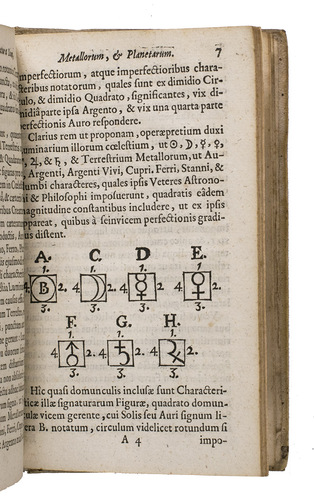 Metallorum, & Planetarum. 7
imperfectiorum, atque imperfectioribus chara-
cteribus notatorum, quales sunt ex dimidio Cir-
culo, & dimidio Quadrato, significantes, vix di-
midiâ parte ipsa Argento, & vix una quarta parte
perfectionis Auro respondere.
Clarius rem ut proponam, operæpretium duxi
Luminarium illorum cœlestium, ut ☉, ☽, ☿, ♀,
♂, ♃, & ♄, & Terrestrium Metallorum, ut Au-
ri, Argenti, Argenti Vivi, Cupri, Ferri, Stanni, &
Plumbi characteres, quales ipsis Veteres Astrono-
mi & Philosophi imposuerunt, quadratis eâdem
magnitudine constantibus includere, ut ex ipsis
appareat, quibus à seinvicem perfectionis gradi-
bus distent.
A. C. D E.
1. 1. 1. 1.
4 B 2. 4 ☽ 2. 4 ☿ 2. 4 ♀ 2.
3. 3. 3. 3.
F. G. H.
1. 1. 1.
4 ♂ 2. 4 ♄ 2. 4 ♃ 2.
3. 3. 3.
Hic quasi domunculis inclusæ sunt Characteri-
sticæ illæ signaturarum Figuræ, quadrato domun-
culæ vicem gerente, cui Solis seu Auri signum li-
tera B. notatum, circulum videlicet rotundum si
A 4 impo-